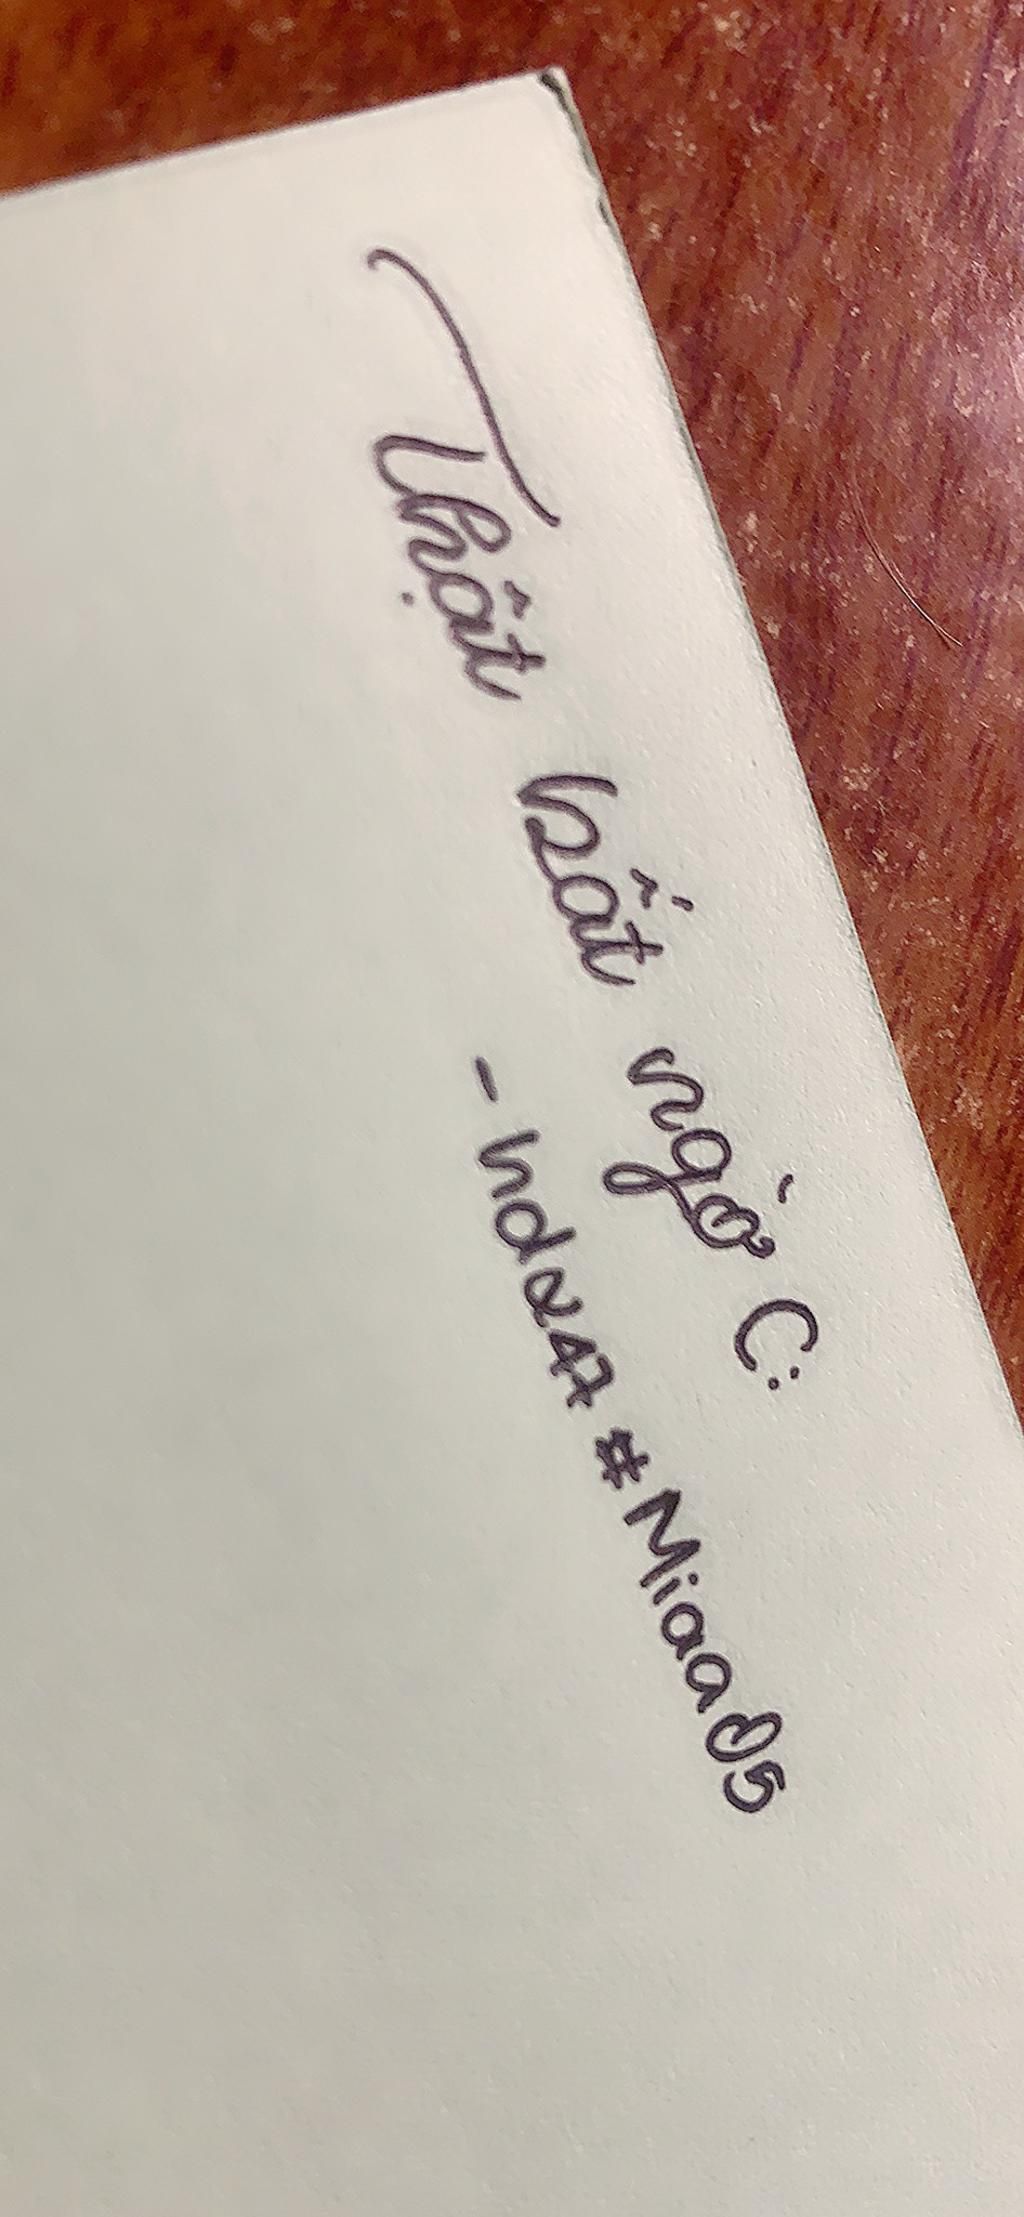 Thật bất ngờ C:
- hdα47 #Miaa05